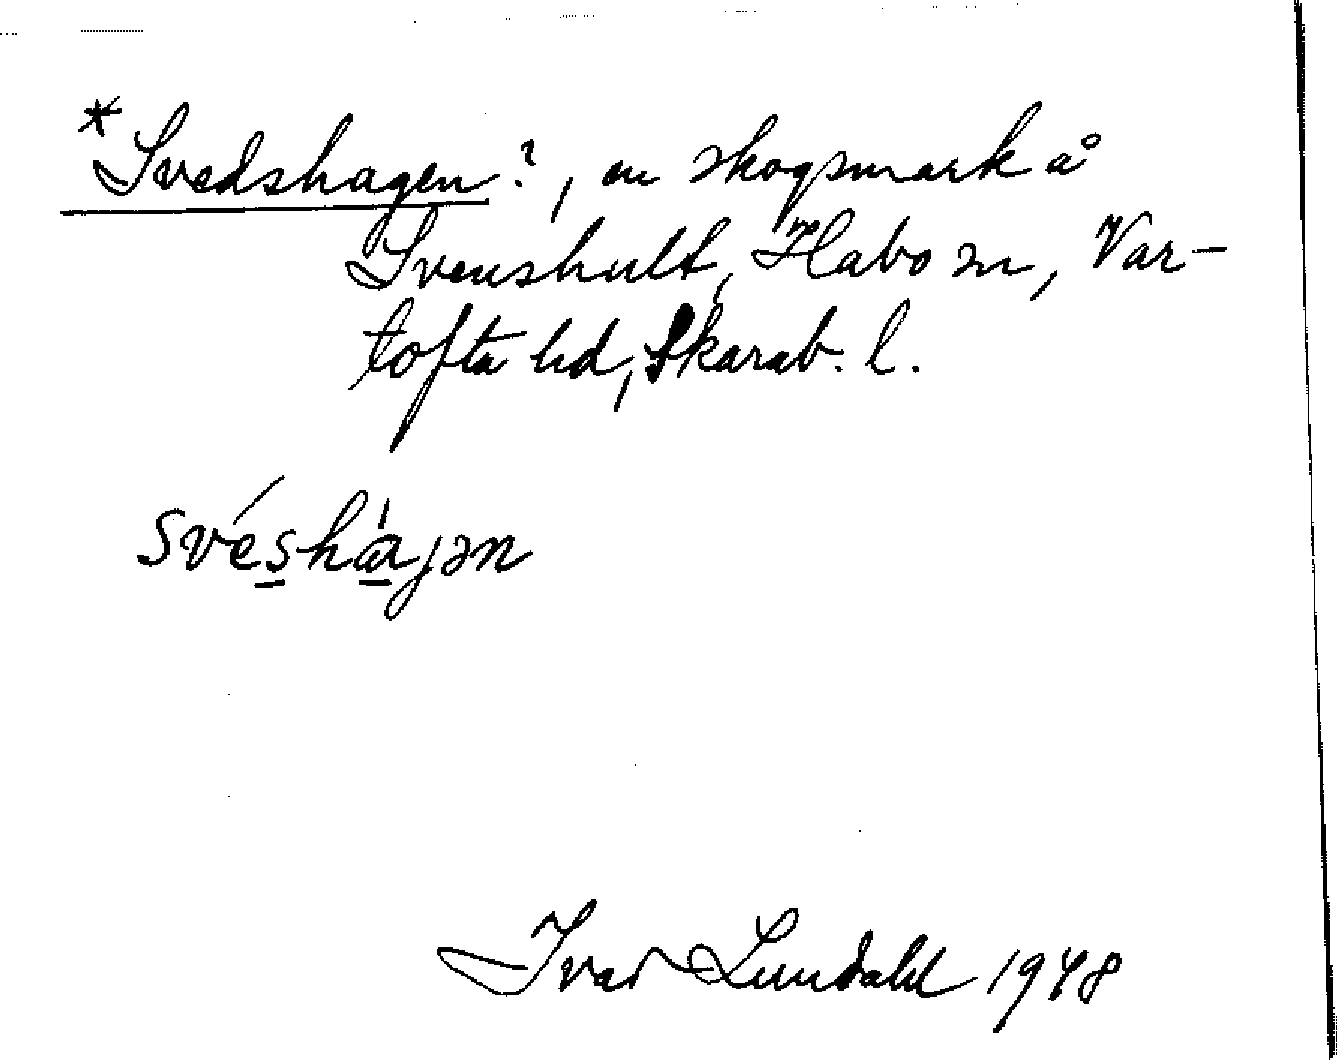 *Svedshagen?, en skogsmark å
Svenshult, Habo sn, Var-
tofta hd, Skarab. l.
svéshájən
Ivar Lundahl 1948